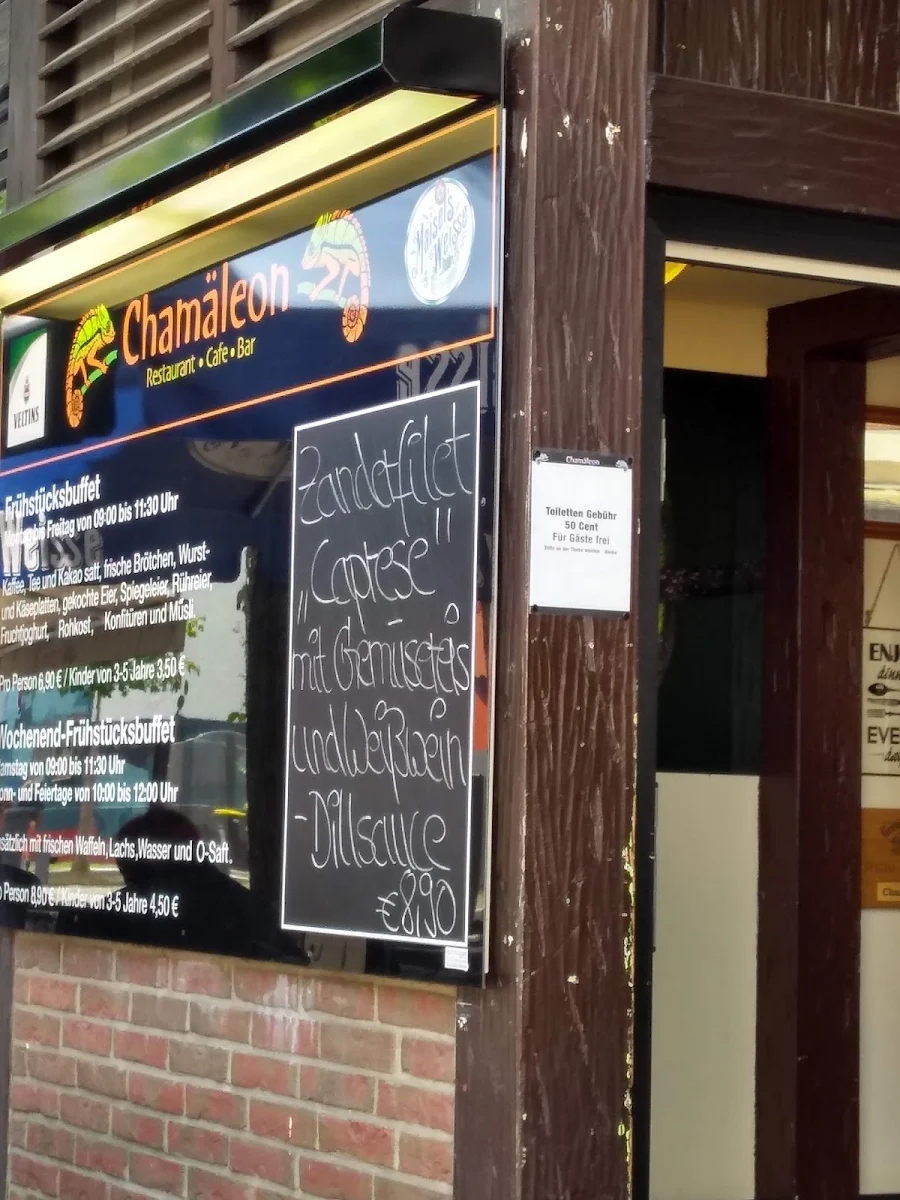 Chamäleon
Restaurant • Cafe • Bar
Maisel's
Weisse
VELTINS
Frühstücksbuffet
Freitag von 09:00 bis 11:30 Uhr
Weisse
Kaffee, Tee und Kakao satt, frische Brötchen, Wurst-
und Käseplatten, gekochte Eier, Spiegeleier, Rühreier,
Fruchtjoghurt, Rohkost, Konfitüren und Müsli.
Pro Person 6,90 € / Kinder von 3-5 Jahre 3,50 €
Wochenend-Frühstücksbuffet
amstag von 09:00 bis 11:30 Uhr
onn- und Feiertage von 10:00 bis 12:00 Uhr
sätzlich mit frischen Waffeln, Lachs, Wasser und O-Saft.
o Person 8,90 € / Kinder von 3-5 Jahre 4,50 €
Zanderfilet
„Caprese"
mit Gemüsereis
und Weißwein
-Dillsauce
€8,90
Chamäleon
Toiletten Gebühr
50 Cent
Für Gäste frei
ENJ
EVE